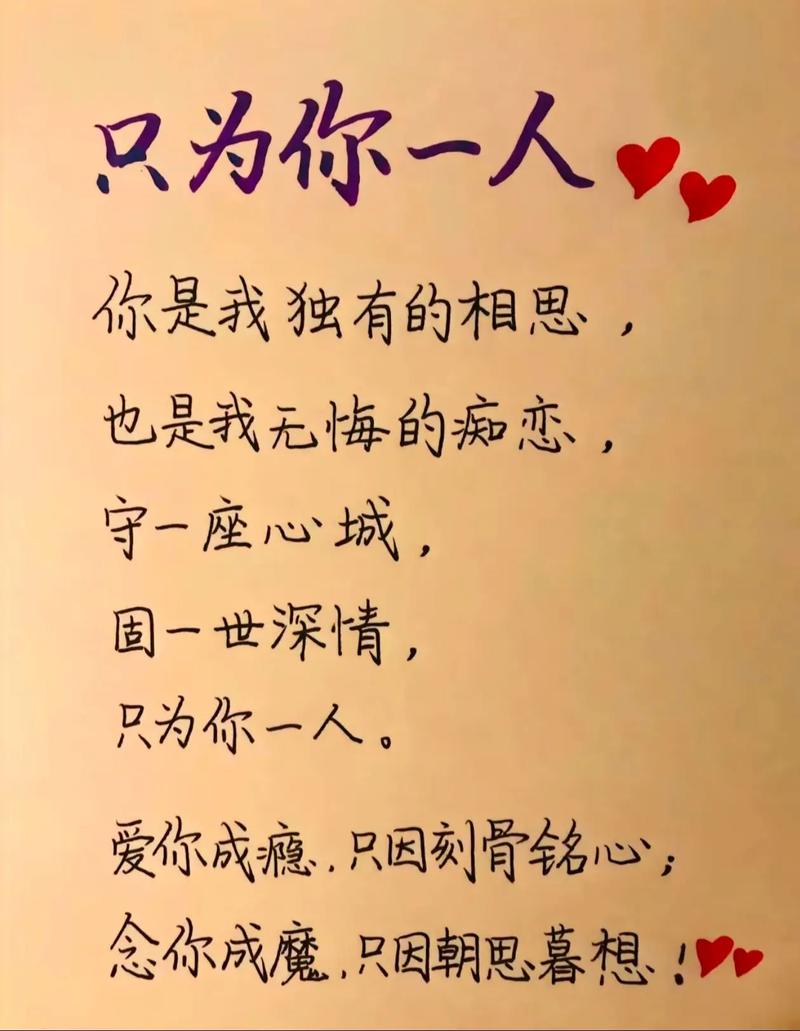 只为你一人
你是我独有的相思，
也是我无悔的痴恋，
守一座心城，
固一世深情，
只为你一人。
爱你成瘾.只因刻骨铭心；
念你成魔.只因朝思暮想！